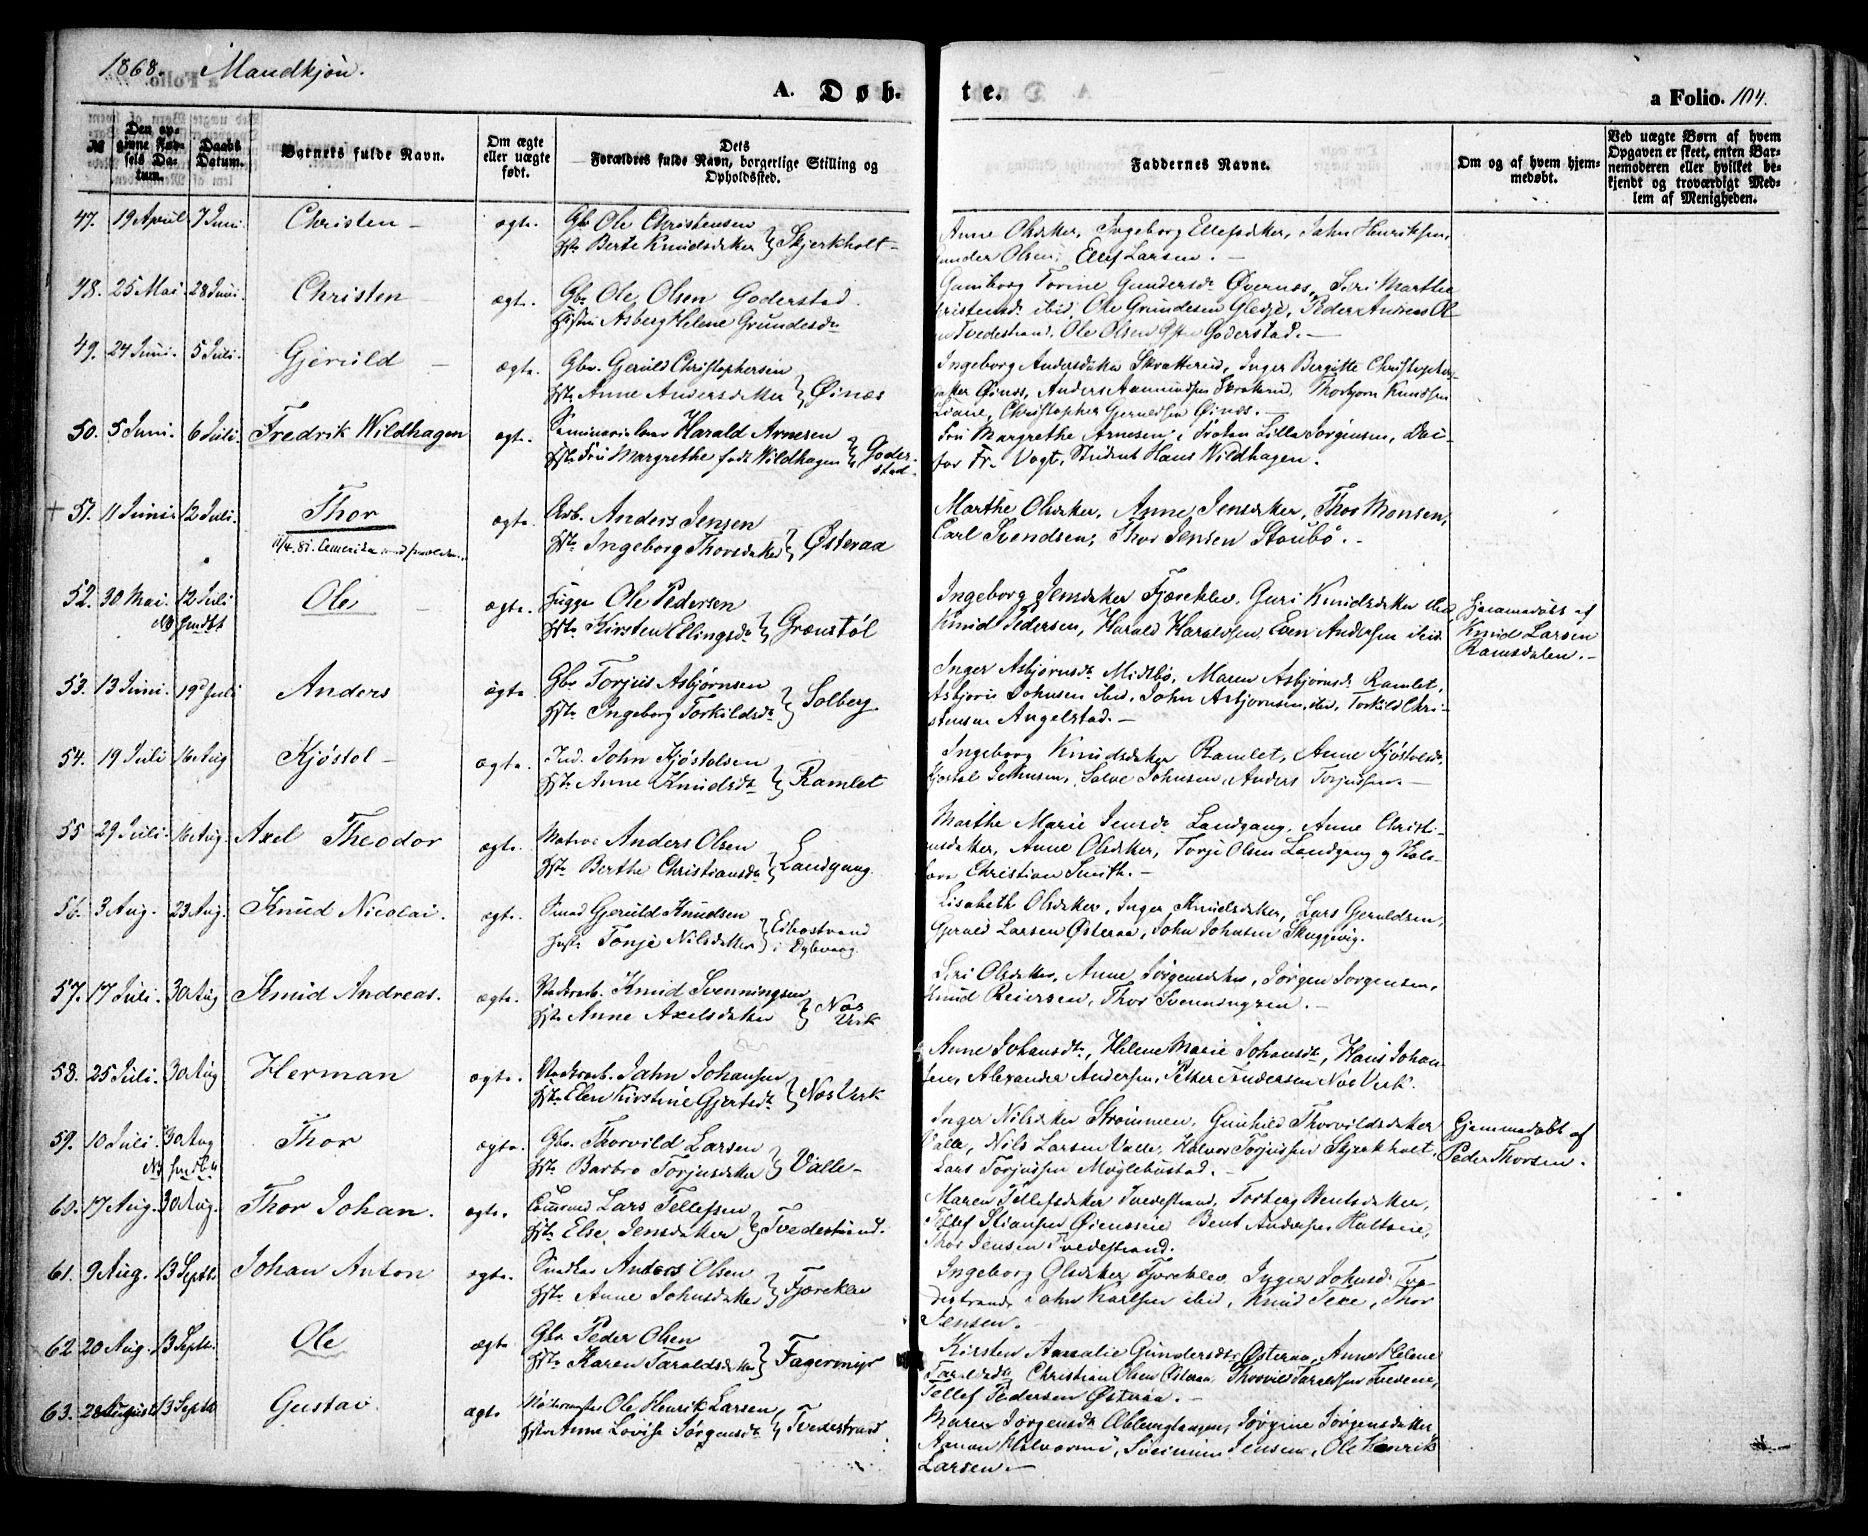 1868. Mandkjøn.
A. Døb-
te.
a Folio. 104.
№
Den op-
givne Fød-
sels Da-
tum.
Daabs
Datum.
Barnets fulde Navn.
Om ægte
eller uægte
født.
Dets
Forældres fulde Navn, borgerlige Stilling og
Opholdssted.
Faddernes Navne.
Om og af hvem hjem-
medøbt.
Ved uægte Børn af hvem
Opgaven er skeet, enten Bar-
nemoderen eller hvilket be-
kjendt og troværdigt Med-
lem af Menigheden.
47. 19 April 7 Juni Christen – ægte. Gbr Ole Christensen
Hst. Berte Knudsdatter } Skjerkholt –
Anne Olsdatter, Ingeborg Ellefsdatter, John Henriksen,
Gunder Olsen, Ellef Larsen. –
48. 25 Mai. 28 Juni. Christen ægte. Gbr Ole Olsen Goderstad.
Hustru Asberg Helene Grundesdtr
Gunborg Torine Gundersdr Øvernæs, Siri Marthe
Christensd. ibid, Ole Grundesen Gledje, Peder Andreas Ol-
sen Tvedestrand, Ole Olsen Goderstad. –
49. 24 Juni. 5 Juli. Gjeruld – ægte. Gbr. Gjeruld Christophersen
Hst. Anne Andersdatter } Øinæs
Ingeborg Andersdatter Skratterud, Inger Bergitte Christophers-
datter Øinæs, Anders Aamundsen Skratterud, Thorbjørn Knudsen
Liane, Christopher Gjeruldsen Øinæs. –
50. 5 Juni. 6 Juli. Fredrik Wildhagen ægte. Seminarielærer Harald Arnesen
Hst. Fru Margrethe født Wildhagen } Goder-
stad.
Fru Margrethe Arnesen, Frøken Lilla Jørgensen, Doc-
tor Fr. Vogt, Student Hans Wildhagen.
+ 51. 11 Juni. 12 Juli. Thor ægte. Arb. Anders Jensen
Hst. Ingeborg Thorsdatter } Østeraa
11/4. 81. Amerika med forældre.
Marthe Olsdatter, Anne Jensdatter, Thor Monsen,
Carl Svendsen, Thor Jensen Staubø. –
52. 30 Mai. 12 Juli Ole – ægte. Ole Pedersen
NB fundet
Hst. Kirsten Ellingsdr } Grønstøl
Ingeborg Jensdatter Fjæreklev, Guri Knudsdatter ibid,
Knud Pedersen, Harald Haraldsen, Even Andersen ibid
Hjemmedøbt af
Knud Larsen
Ramsdalen. –
53. 13 Juni. 19 Juli Anders ægte. Gbr Torjus Asbjørnsen
Hst. Ingeborg Torkildsdr } Solberg
Inger Asbjørnsdr Midtbø, Maren Asbjørnsdr Ramlet,
Asbjørn Johnsen ibid, John Asbjørnsen ibid, Torkild Chri-
stensen Angelstad. –
54. 19 Juli 16 Aug Kjøstol – ægte. Ind. John Kjøstolsen
Hst. Anne Knudsdtr } Ramlet
Ingeborg Knudsdatter Ramlet, Anne Kjøstolsdr,
Kjøstol Johnsen, Salve Johnsen, Anders Torjussen. –
55 29 Juli. 16 Aug. Axel Theodor ægte. Matros Anders Olsen
Hst. Berthe Christiansdr } Landgang.
Marthe Marie Jensdr Landgang, Anne Christi-
ansdatter, Anne Olsdatter, Torje Olsen Landgang
Christian Smith. –
56. 3 Aug. 23 Aug. Knud Nicolai. ægte. Smed Gjeruld Knudsen
Hust. Tonje Nilsdatter } Edbostrand
i Dybvaag
Lisabeth Olsdatter, Inger Knudsdatter, Lars Geruldsen,
Gjeruld Larsen Østeraa, John Johnsen Skuggevig.
57. 17 Juli. 30 Aug Knud Andreas. ægte. Værksarb. Knud Svenningsen
Hst. Anne Axelsdatter } Næs
Verk
Siri Olsdatter, Anne Jørgensdatter, Jørgen Jørgensen,
Knud Reiersen, Thor Svenningsen. –
58. 25 Juli. 30 Aug Herman ægte. Værksarb. John Johansen
Hst. Elen Kirstine Gjertsdr } Næs Verk
Anne Johansdtr, Helene Marie Johansdtr, Hans Johan-
sen, Alexander Andersen, Petter Andersen Næs Verk.
59. 10 Juli. 30 Aug Thor ægte. Gbr. Thorvild Larsen
NB fundet
Hst. Barbro Torjusdatter } Valle –
Inger Nilsdatter Strømmen, Gunhild Thorvildsdatter
Valle, Nils Larsen Valle, Halvor Torjussen Skjerkholt,
Lars Torjussen Møglebustad. –
Hjemmedøbt af
Peder Thorsen.
60. 17 Aug. 30 Aug. Thor Johan. ægte. Lars Tellefsen
Hst. Else Jensdatter } Tvedestrand.
Maren Tellefsdatter Tvedestrand, Torberg Bentsdatter,
Tellef Stiansen, Bent Andersen Holtseie,
Thor Jensen Tvedestrand.
61. 9 Aug. 13 Septr. Johan Anton ægte. Snedker Anders Olsen
Hst. Anne Johnsdatter } Fjæreklev
Ingeborg Olsdatter Fjæreklev, Inger Johnsdr Tve-
destrand, John Karlsen ibid, Knud Teie, Thor
Jensen. –
62. 20 Aug. 13 Septr. Ole ægte Gbr Peder Olsen
Hst. Karen Taraldsdatter } Fagermyr
Kirsten Amalie Gundersdtr Østeraa, Anne Helene
Taraldsdtr, Christian Olsen Østeraa, Thorvild Taraldsen Tvedene,
Tellef Pedersen Østeraa. –
63. 28 August 13 Septr Gustav ægte Ole Henrik Larsen
Hst. Anne Lovise Jørgensdr } Tvedestrand.
Maren Jørgensdtr, Jørgine Jørgensdatter,
Jensen, Ole Henrik
Larsen. –